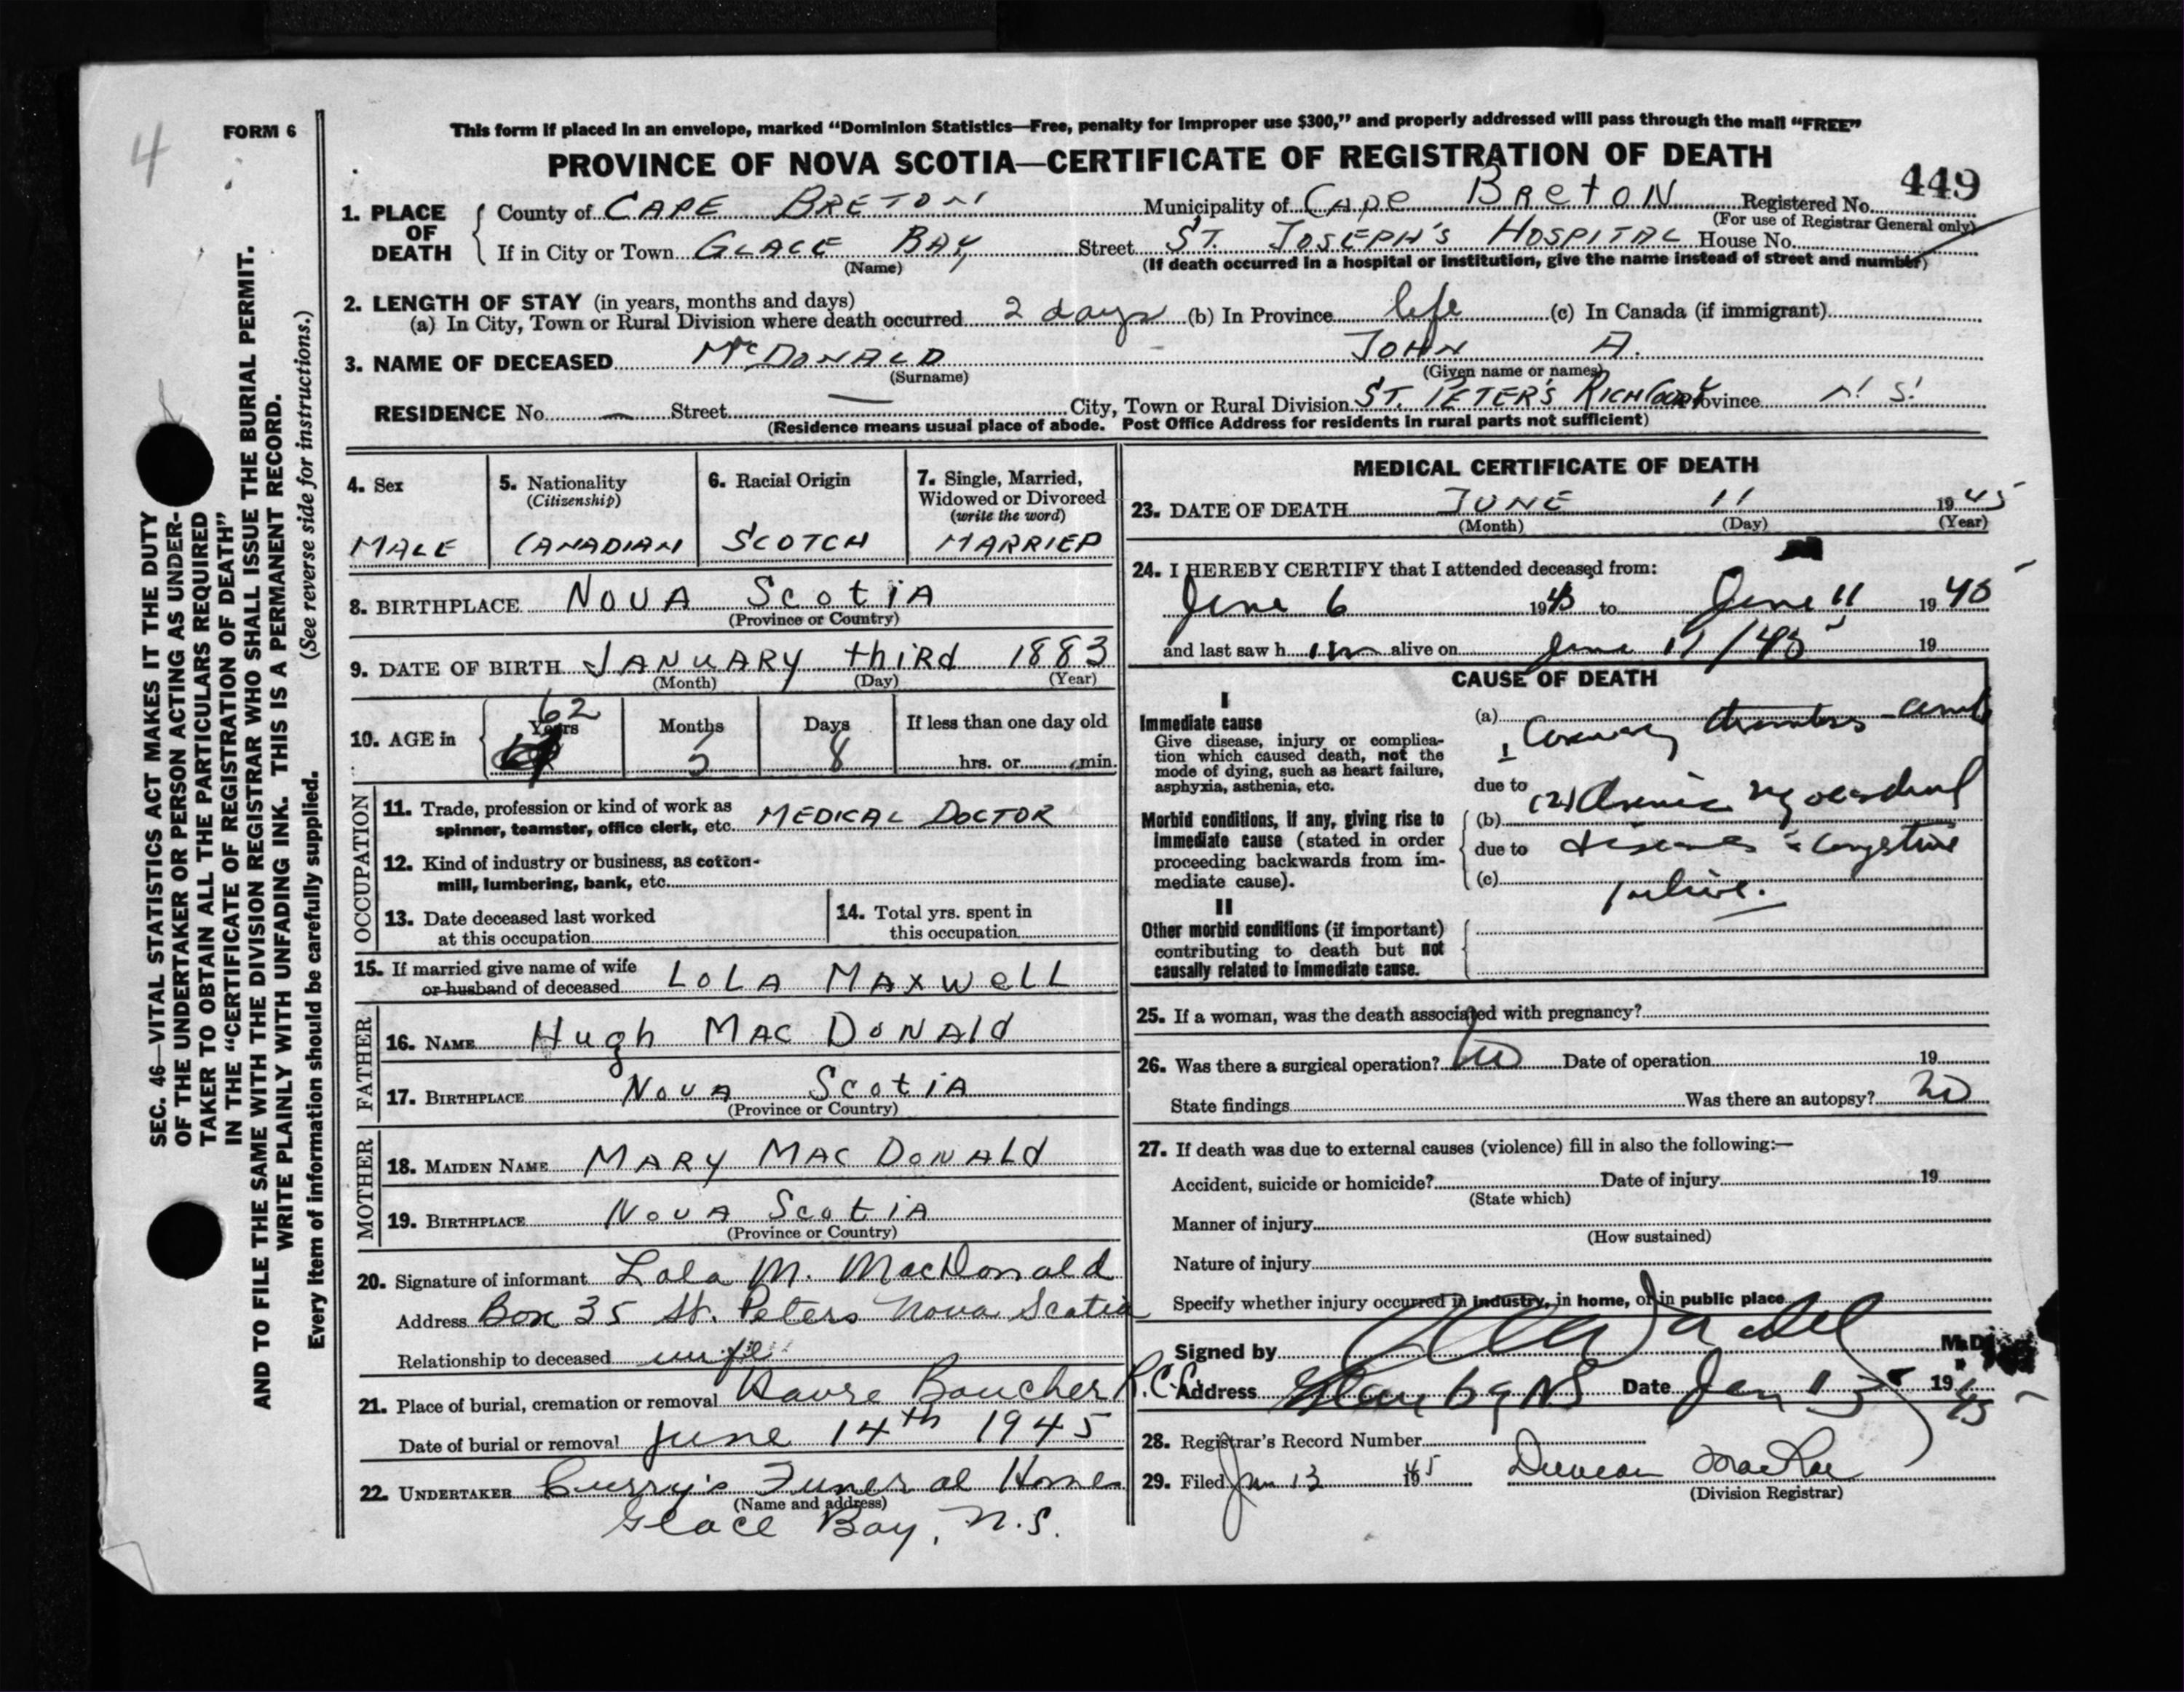 4
FORM 6
This form if placed in an envelope, marked “Dominion Statistics—Free, penalty for improper use $300,” and properly addressed will pass through the mail “FREE”
PROVINCE OF NOVA SCOTIA—CERTIFICATE OF REGISTRATION OF DEATH
449
1. PLACE OF DEATH
County of CAPE BRETON Municipality of CAPE BRETON Registered No.
(For use of Registrar General only)
If in City or Town GLACE BAY Street ST. JOSEPH'S HOSPITAL House No.
(Name) (If death occurred in a hospital or institution, give the name instead of street and number)
2. LENGTH OF STAY (in years, months and days)
(a) In City, Town or Rural Division where death occurred 2 days (b) In Province life (c) In Canada (if immigrant)
3. NAME OF DECEASED McDONALD JOHN A.
(Surname) (Given name or names)
RESIDENCE No. — Street — City, Town or Rural Division ST. PETER'S RICH COUY Province N. S.
(Residence means usual place of abode. Post Office Address for residents in rural parts not sufficient)
4. Sex
MALE
5. Nationality
(Citizenship)
CANADIAN
6. Racial Origin
SCOTCH
7. Single, Married,
Widowed or Divorced
(write the word)
MARRIED
8. BIRTHPLACE NOVA SCOTIA
(Province or Country)
9. DATE OF BIRTH JANUARY third 1883
(Month) (Day) (Year)
10. AGE in 62 Years Months 5 Days 8 If less than one day old
hrs. or min.
OCCUPATION
11. Trade, profession or kind of work as
spinner, teamster, office clerk, etc. MEDICAL DOCTOR
12. Kind of industry or business, as cotton-
mill, lumbering, bank, etc.
13. Date deceased last worked
at this occupation
14. Total yrs. spent in
this occupation
15. If married give name of wife
or husband of deceased LOLA MAXWELL
FATHER
16. NAME Hugh MAC DONALD
17. BIRTHPLACE NOVA SCOTIA
(Province or Country)
MOTHER
18. MAIDEN NAME MARY MAC DONALD
19. BIRTHPLACE NOVA SCOTIA
(Province or Country)
20. Signature of informant Lola M. MacDonald
Address Box 35 St. Peters Nova Scotia
Relationship to deceased wife
21. Place of burial, cremation or removal Boucher R.C.
Date of burial or removal June 14th 1945
22. UNDERTAKER Curry's Funeral Home
(Name and address)
Glace Bay, N.S.
MEDICAL CERTIFICATE OF DEATH
23. DATE OF DEATH JUNE 11 1945
(Month) (Day) (Year)
24. I HEREBY CERTIFY that I attended deceased from:
June 6 1945 to June 11 1945
and last saw h im alive on June 11/45 19
CAUSE OF DEATH
I
Immediate cause
Give disease, injury or complica-
tion which caused death, not the
mode of dying, such as heart failure,
asphyxia, asthenia, etc.
(a)
1 Coronary thrombosis
due to
Morbid conditions, if any, giving rise to
immediate cause (stated in order
proceeding backwards from im-
mediate cause).
(2) Chronic myocardial
(b)
due to disease congestive
(c) failure.
II
Other morbid conditions (if important)
contributing to death but not
causally related to immediate cause.
25. If a woman, was the death associated with pregnancy?
26. Was there a surgical operation? no Date of operation 19
State findings Was there an autopsy? no
27. If death was due to external causes (violence) fill in also the following:—
Accident, suicide or homicide? Date of injury 19
(State which)
Manner of injury
(How sustained)
Nature of injury
Specify whether injury occurred in industry, in home, or in public place
Signed by M.D.
Address Glace Bay NS Date 1945
28. Registrar's Record Number
29. Filed Jun 13 1945 Duncan MacRae
(Division Registrar)
SEC. 46—VITAL STATISTICS ACT MAKES IT THE DUTY
OF THE UNDERTAKER OR PERSON ACTING AS UNDER-
TAKER TO OBTAIN ALL THE PARTICULARS REQUIRED
IN THE “CERTIFICATE OF REGISTRATION OF DEATH”
AND TO FILE THE SAME WITH THE DIVISION REGISTRAR WHO SHALL ISSUE THE BURIAL PERMIT.
WRITE PLAINLY WITH UNFADING INK. THIS IS A PERMANENT RECORD.
(See reverse side for instructions.)
Every item of information should be carefully supplied.